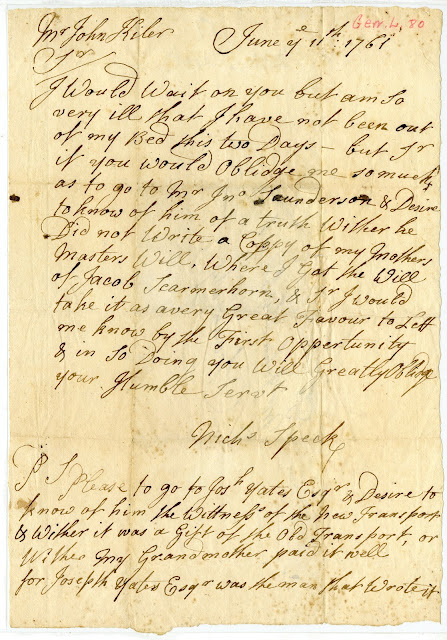 Gen. L, DO
Mr John Kiler June ye 11th 1761
Sr
I Would Wait on you but am So
very ill that I have not been out
of my Bed this two Days - but Sr
if you would Oblidge me so much
as to go to Mr Jno Saunderson & Desire
to know of him of a truth Wither he
Did not Write a Coppy of my Mothers
Masters Will, Where I Got the Will
of Jacob Scarmerhorn, & Sr I would
take it as a very Great Favour to Lett
me know by the First Opportunity
& in So Doing you Will Greatly Oblidge
your Humble Servt
Nichs Speck
P S Please to go to Josh Yates Esqr & Desire to
know of him the Wittness of the New Transport
& Wither it was a Gift of the Old Transport, or
Wither My Grandmother paid it well
for Joseph Yates Esqr was the man that Wrote it